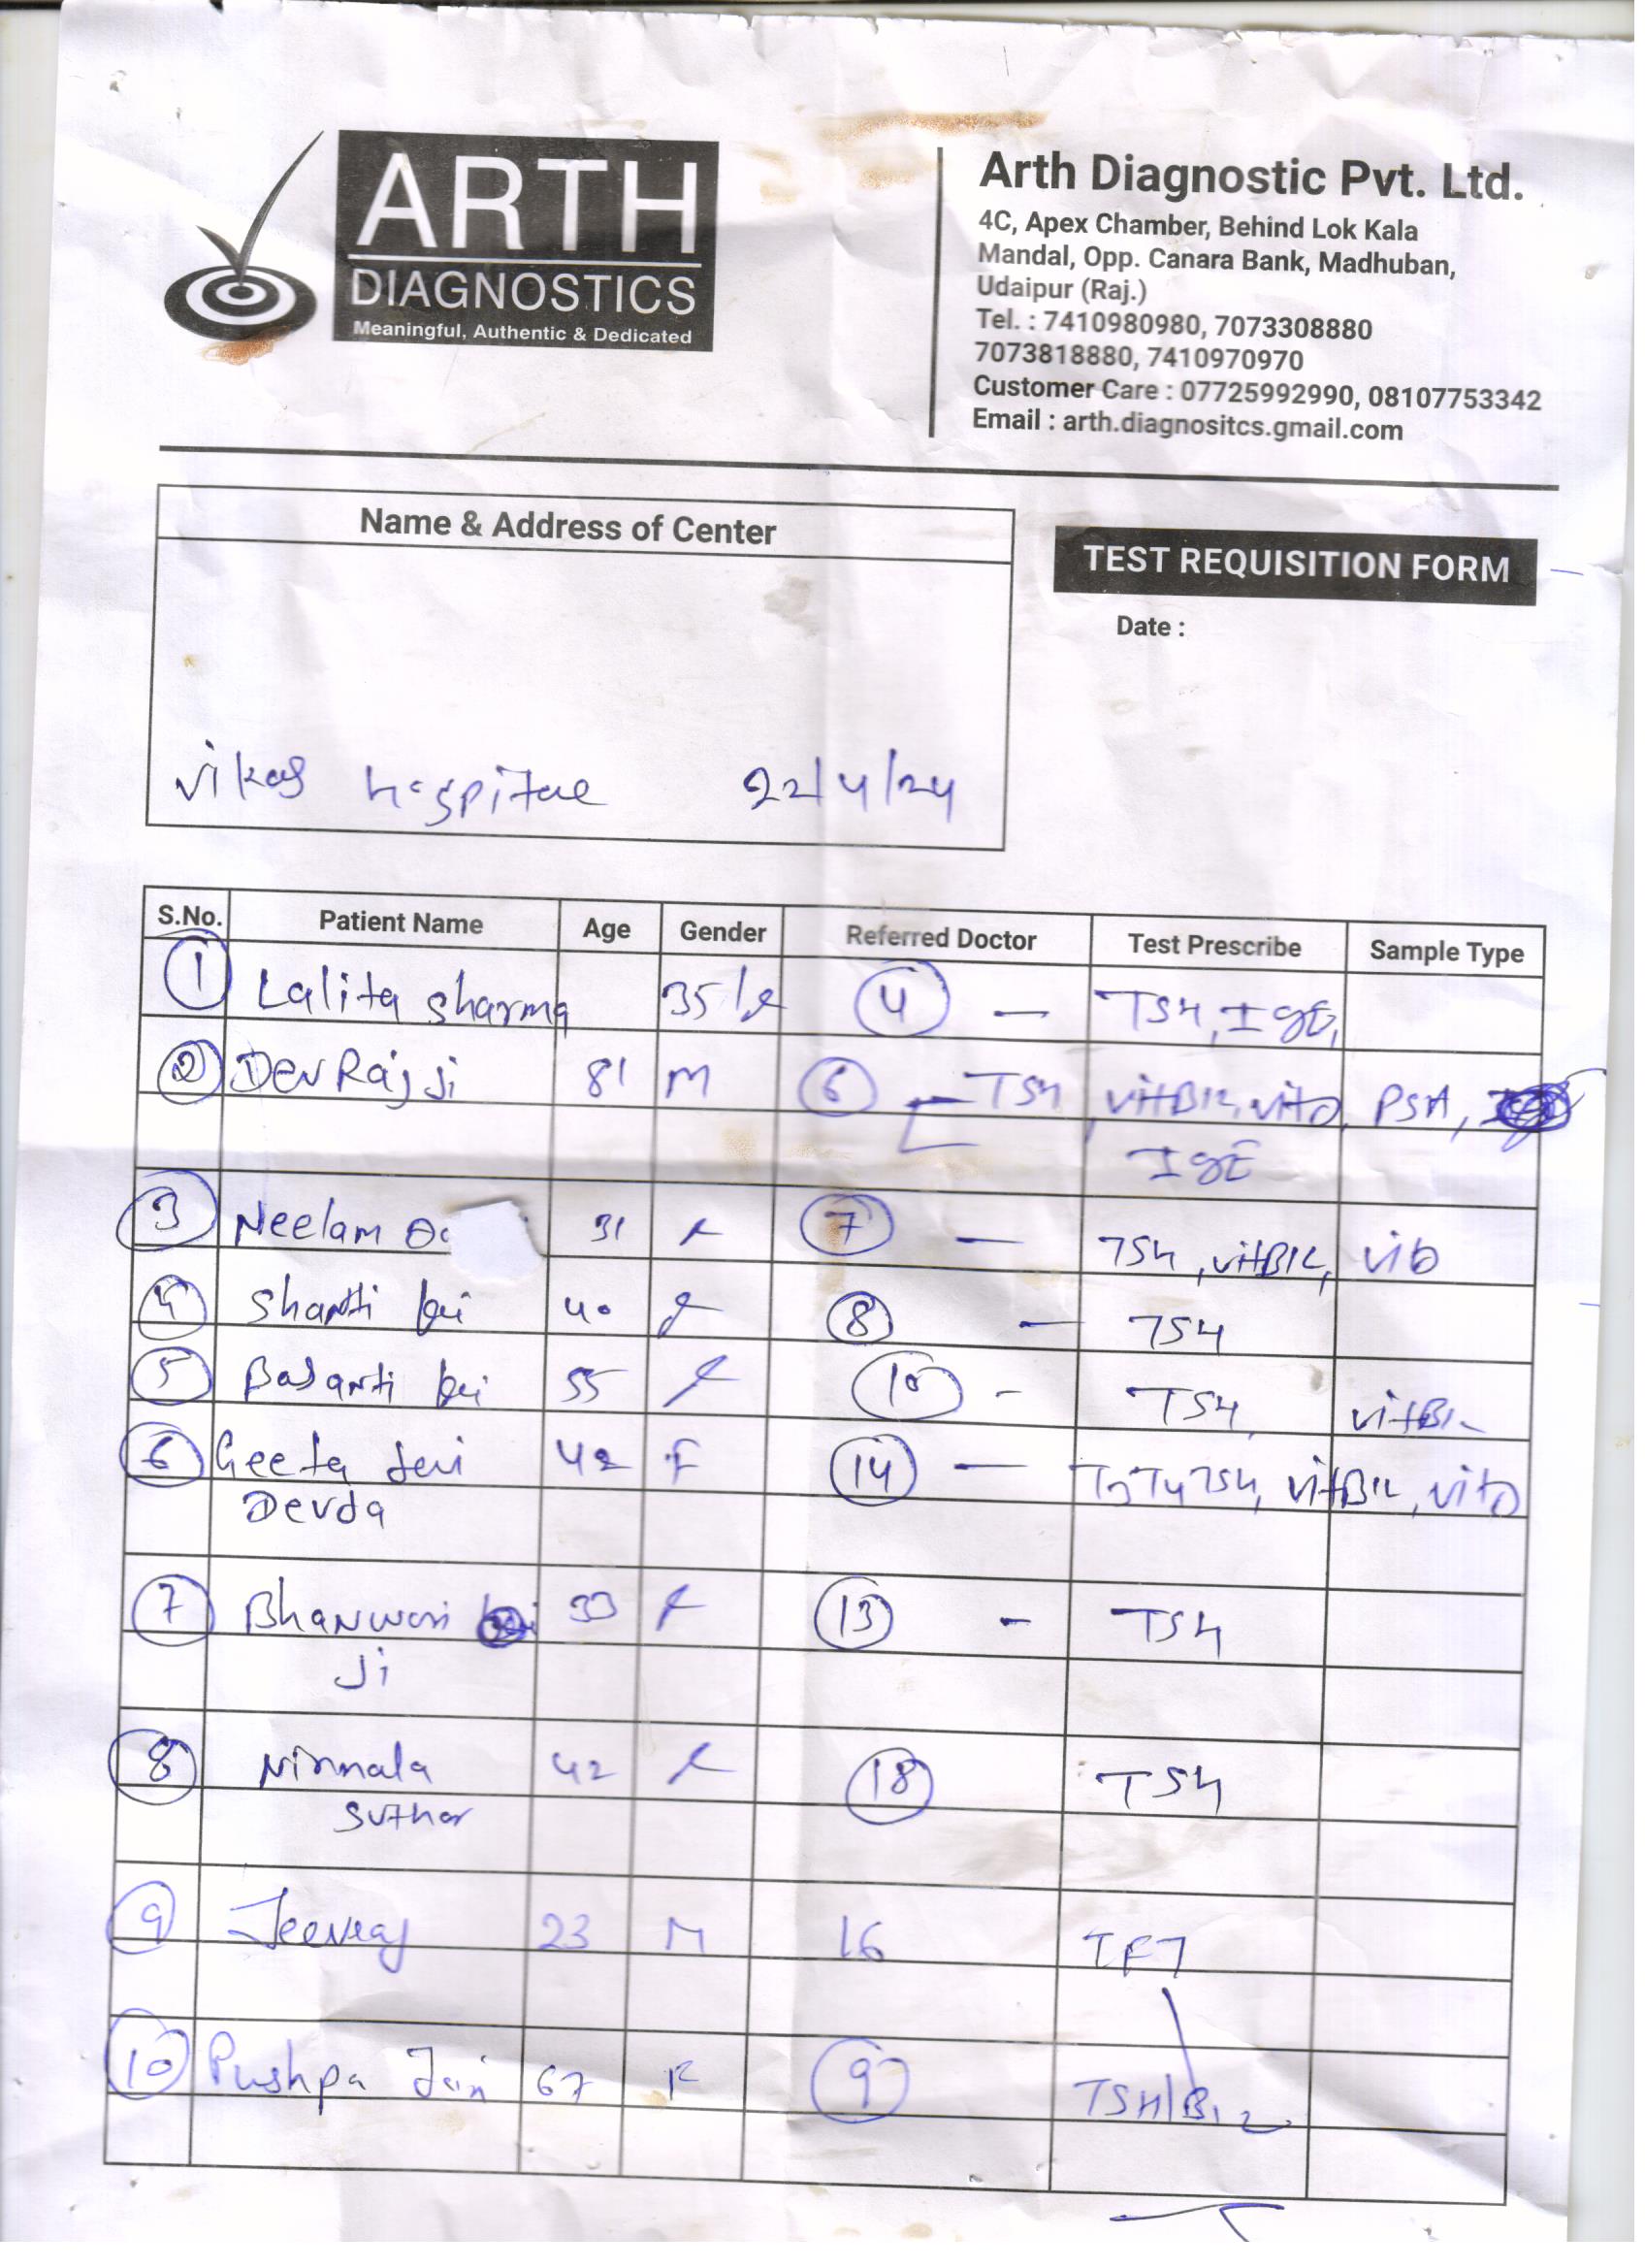 ARTH
DIAGNOSTICS
Meaningful, Authentic & Dedicated
Arth Diagnostic Pvt. Ltd.
4C, Apex Chamber, Behind Lok Kala
Mandal, Opp. Canara Bank, Madhuban,
Udaipur (Raj.)
Tel. : 7410980980, 7073308880
7073818880, 7410970970
Customer Care : 07725992990, 08107753342
Email : arth.diagnositcs.gmail.com
Name & Address of Center
TEST REQUISITION FORM
Date :
Vikas Hospital 22/4/24
S.No. Patient Name Age Gender Referred Doctor Test Prescribe Sample Type
1 Lalita Sharma 35/F 4 — TSH, IgE,
2 Dev Raj Ji 81 M 6 — TSH, VitB12, VitD, PSA,
IgE
3 Neelam 31 F 7 — TSH, VitB12, VitD
4 Shanti bai 40 F 8 — TSH
5 Basanti bai 55 F 10 - TSH, VitB12
6 Geeta Devi 42 F 14 — T3T4TSH, VitB12, VitD
Devda
7 Bhanwari 33 F 13 - TSH
Ji
8 Nirmala 42 F 18 TSH
Suthar
9 Jeevraj 23 M 16 TFT
10 Pushpa Jain 67 F 9 TSH/B12